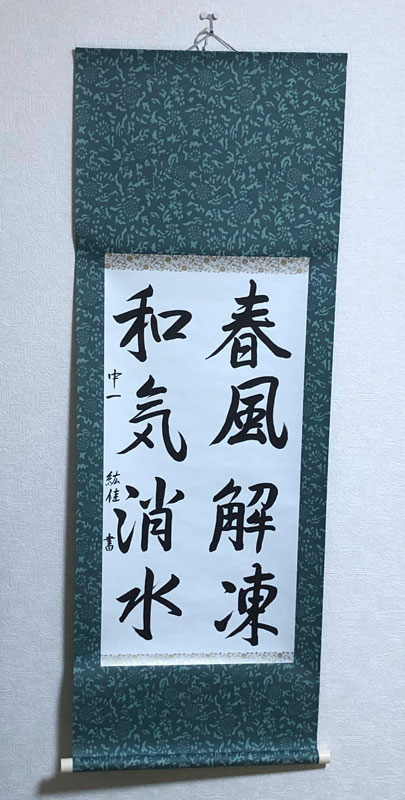 春風解凍
和気消水
中一 紘佳 書